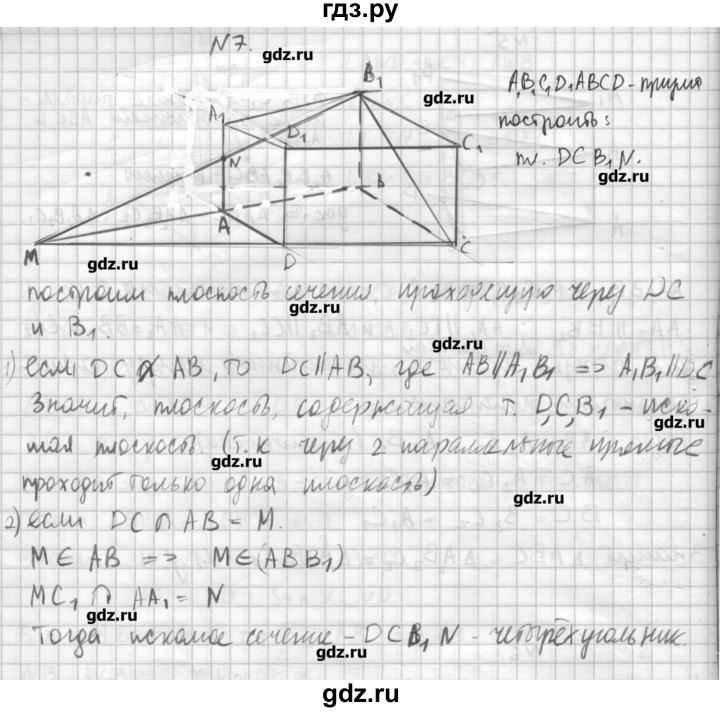 гдз.ру
N7.
gdz.ru
B₁
A₁
D₁
C₁
N
B
A
M
D
C
gdz.ru
A₁B₁C₁D₁ABCD - призма
построить:
т. DCB₁N.
gdz.ru
gdz.ru
построим плоскость сечения, проходящую через DC
gdz.ru
и B₁.
gdz.ru
1) если DC ∦ AB, то DC∥AB, где AB∥A₁B₁ => A₁B₁∥DC
Значит, плоскость, содержащая т. D,C,B₁ - иско-
gdz.ru
мая плоскость. (т.к через 2 параллельные прямые
gdz.ru
проходит только одна плоскость)
gdz.ru
2) если DC ∩ AB = M.
M ∈ AB => M ∈ (ABB₁)
MC₁ ∩ AA₁ = N
gdz.ru
Тогда искомое сечение - DCB₁N - четырёхугольник.
gdz.ru
gdz.ru